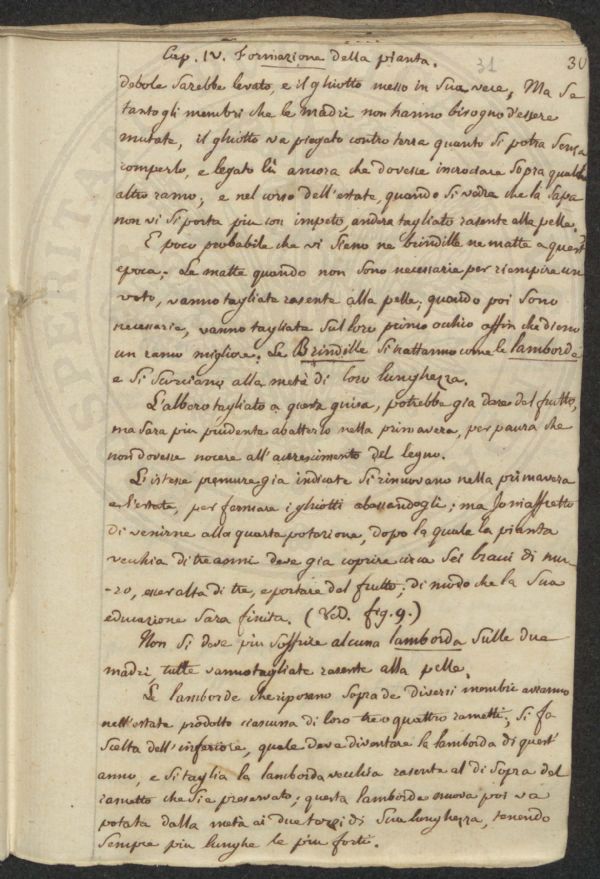 Cap. IV. Formazione della pianta. 31 30
debole sarebbe levato, e il ghiotto messo in sua vece, Ma se
tanto gli membri che le madri non hanno bisogno d'essere
mutate, il ghiotto va piegato contro terra quanto si potrà senza
romperlo, e legato lì ancora che dovesse incrociare sopra qualche
altro ramo; e nel corso dell'estate, quando si vedrà che la sapa
non vi si porta più con impeto, andrà tagliato rasente alla pelle.
È poco probabile che vi sieno ne brindille ne matte a quest'
epoca; Le matte quando non sono necessarie per riempire un
voto, vanno tagliate rasente alla pelle; quando poi sono
necessarie, vanno tagliate sul loro primo occhio affin che dieno
un ramo migliore. Le Brindille si trattanno come le lamborde
e si scurciano alla metà di loro lunghezza.
L'albero tagliato a questa guisa, potrebbe gia dare del frutto,
ma sarà più prudente abatterlo nella primavera, per paura che
non dovesse nocere all'accrescimento del legno.
L'istesse premure gia indicate si rinnovano nella primavera
e l'estate, per fermare i ghiotti abassandogli; ma Jo mi affretto
di venirne alla quarta potazione, dopo la quale la pianta
vecchia di tre anni deve gia coprire circa sei bracci di mu-
-ro, esser alta di tre, e portare del frutto; di modo che la sua
educazione sarà finita. (Ved. fig. 9.)
Non si deve più soffrire alcuna lamborda sulle due
madri, tutte vanno tagliate rasente alla pelle.
Le lamborde che riposano sopra de diversi membri avranno
nell'estate prodotto ciascuna di loro tre o quattro rametti; si fa
scelta dell'inferiore, quale deve diventare la lamborda di quest'
anno, e si taglia la lamborda vecchia rasente al di sopra del
rametto che si è preservato; questa lamborda nuova poi va
potata dalla metà ai due terzi di sua lunghezza, tenendo
sempre più lunghe le più forti.